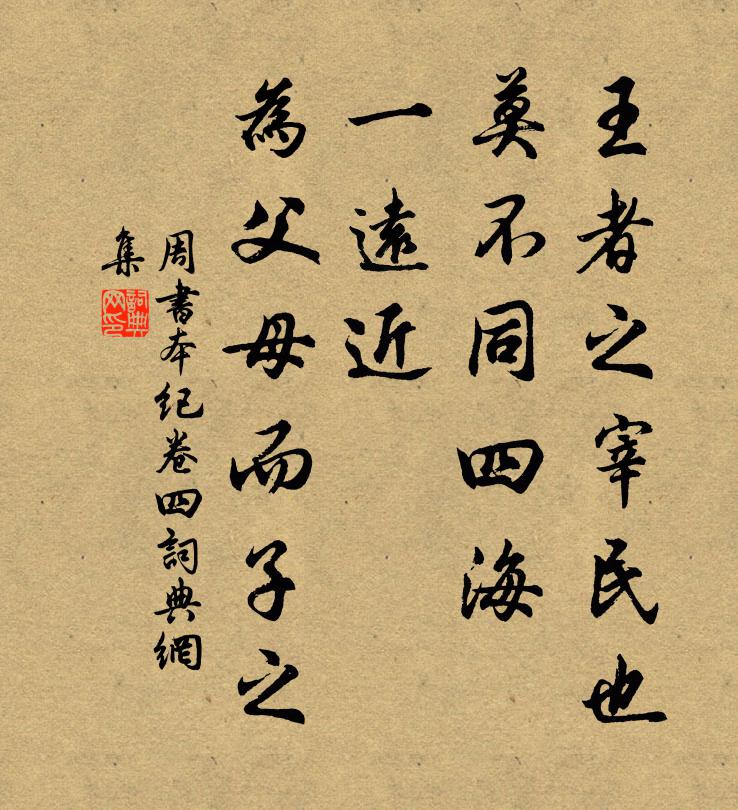 王者之宰民也
莫不同四海
一遠近
為父母而子之
周書本紀卷四詞典網
集
詞典
网印